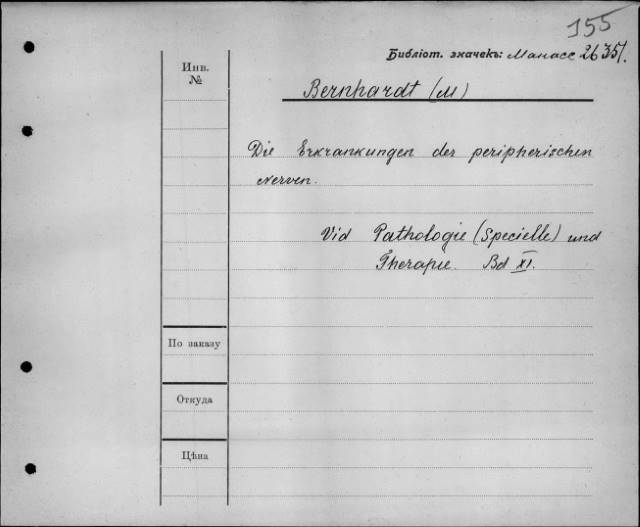 155
Библіот. значекъ: Манасс 26351.
Инв.
№
Bernhardt (M)
Die Erkrankungen der peripherischen
Nerven.
Vid Pathologie (Specielle) und
Therapie. Bd XI.
По заказу
Откуда
Цѣна